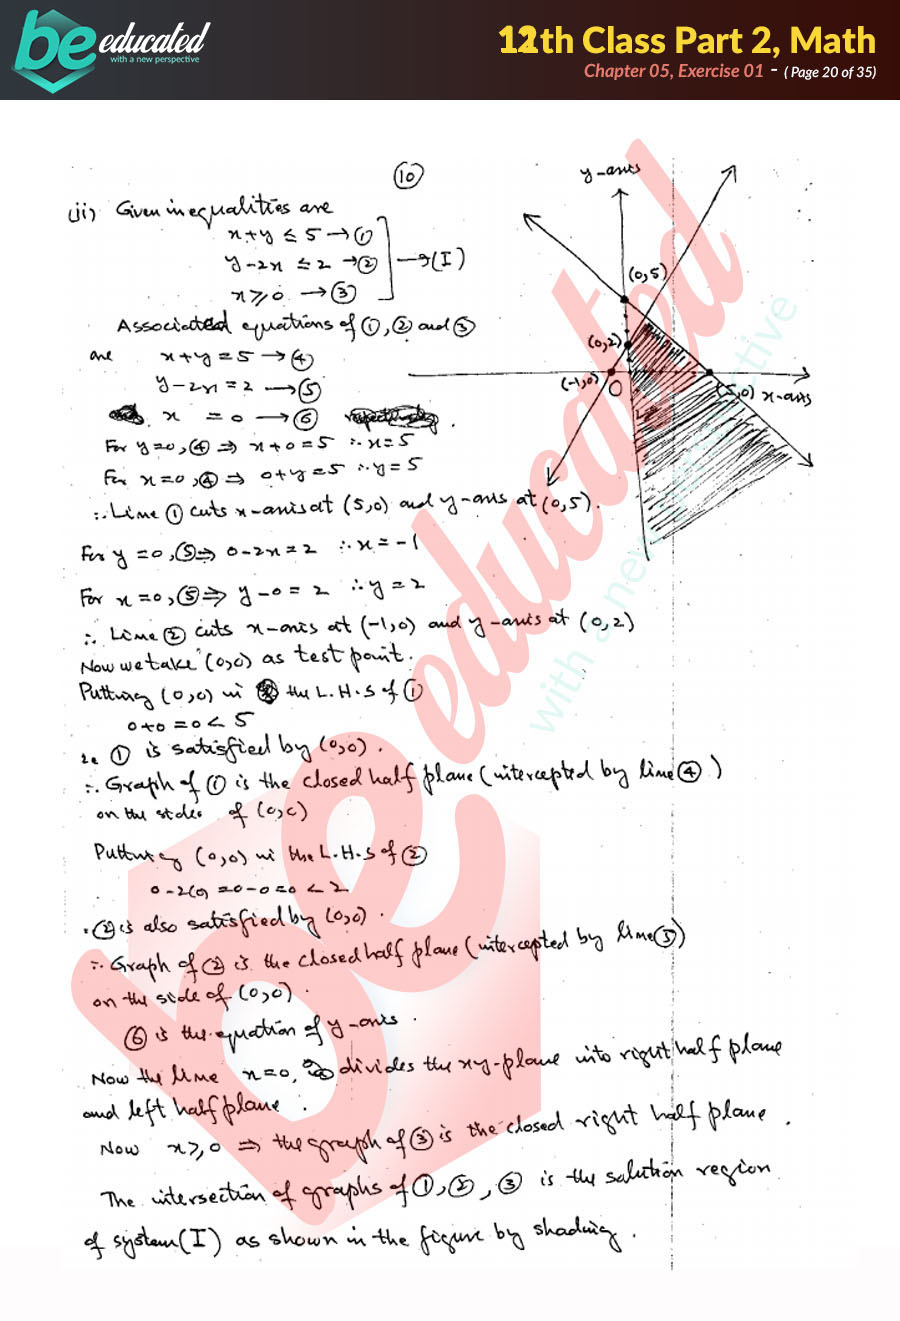 be educated
with a new perspective
12th Class Part 2, Math
Chapter 05, Exercise 01 - ( Page 20 of 35)
10
(ii) Given inequalities are
x+y ≤ 5 → ①
y-2x ≤ 2 → ② → (I)
x ≥ 0 → ③
Associated equations of ①, ② and ③
are x+y = 5 → ④
y-2x = 2 → ⑤
x = 0 → ⑥
For y=0, ④ ⇒ x+0=5 ∴ x=5
For x=0, ④ ⇒ 0+y=5 ∴ y=5
∴ Line ① cuts x-axis at (5,0) and y-axis at (0,5).
For y=0, ⑤ ⇒ 0-2x=2 ∴ x=-1
For x=0, ⑤ ⇒ y-0=2 ∴ y=2
∴ Line ② cuts x-axis at (-1,0) and y-axis at (0,2)
Now we take (0,0) as test point.
Putting (0,0) in the L.H.S of ①
0+0=0<5
① is satisfied by (0,0).
∴ Graph of ① is the closed half plane (intercepted by line ④)
on the sides of (0,0)
Putting (0,0) in the L.H.S of ②
0-2(0)=0-0=0<2
② is also satisfied by (0,0).
∴ Graph of ② is the closed half plane (intercepted by line ⑤)
on the side of (0,0).
⑥ is the equation of y-axis.
Now the line x=0, divides the xy-plane into right half plane
and left half plane.
Now x ≥ 0 ⇒ the graph of ③ is the closed right half plane.
The intersection of graphs of ①, ②, ③ is the solution region
of system (I) as shown in the figure by shading.
y-axis
(0,5)
(0,2)
(-1,0)
O
(5,0) x-axis
be educated
with a new perspective